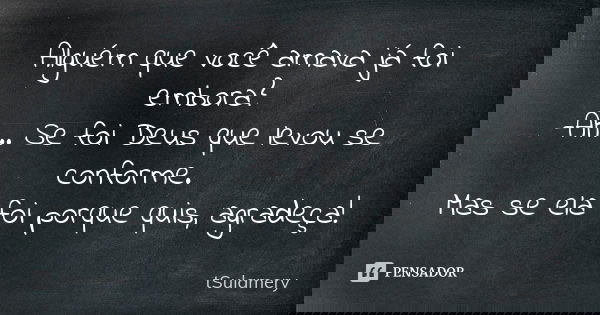 Alguém que você amava já foi
embora?
Ah... Se foi Deus que levou se
conforme.
Mas se ela foi porque quis, agradeça!
tSulamery
PENSADOR